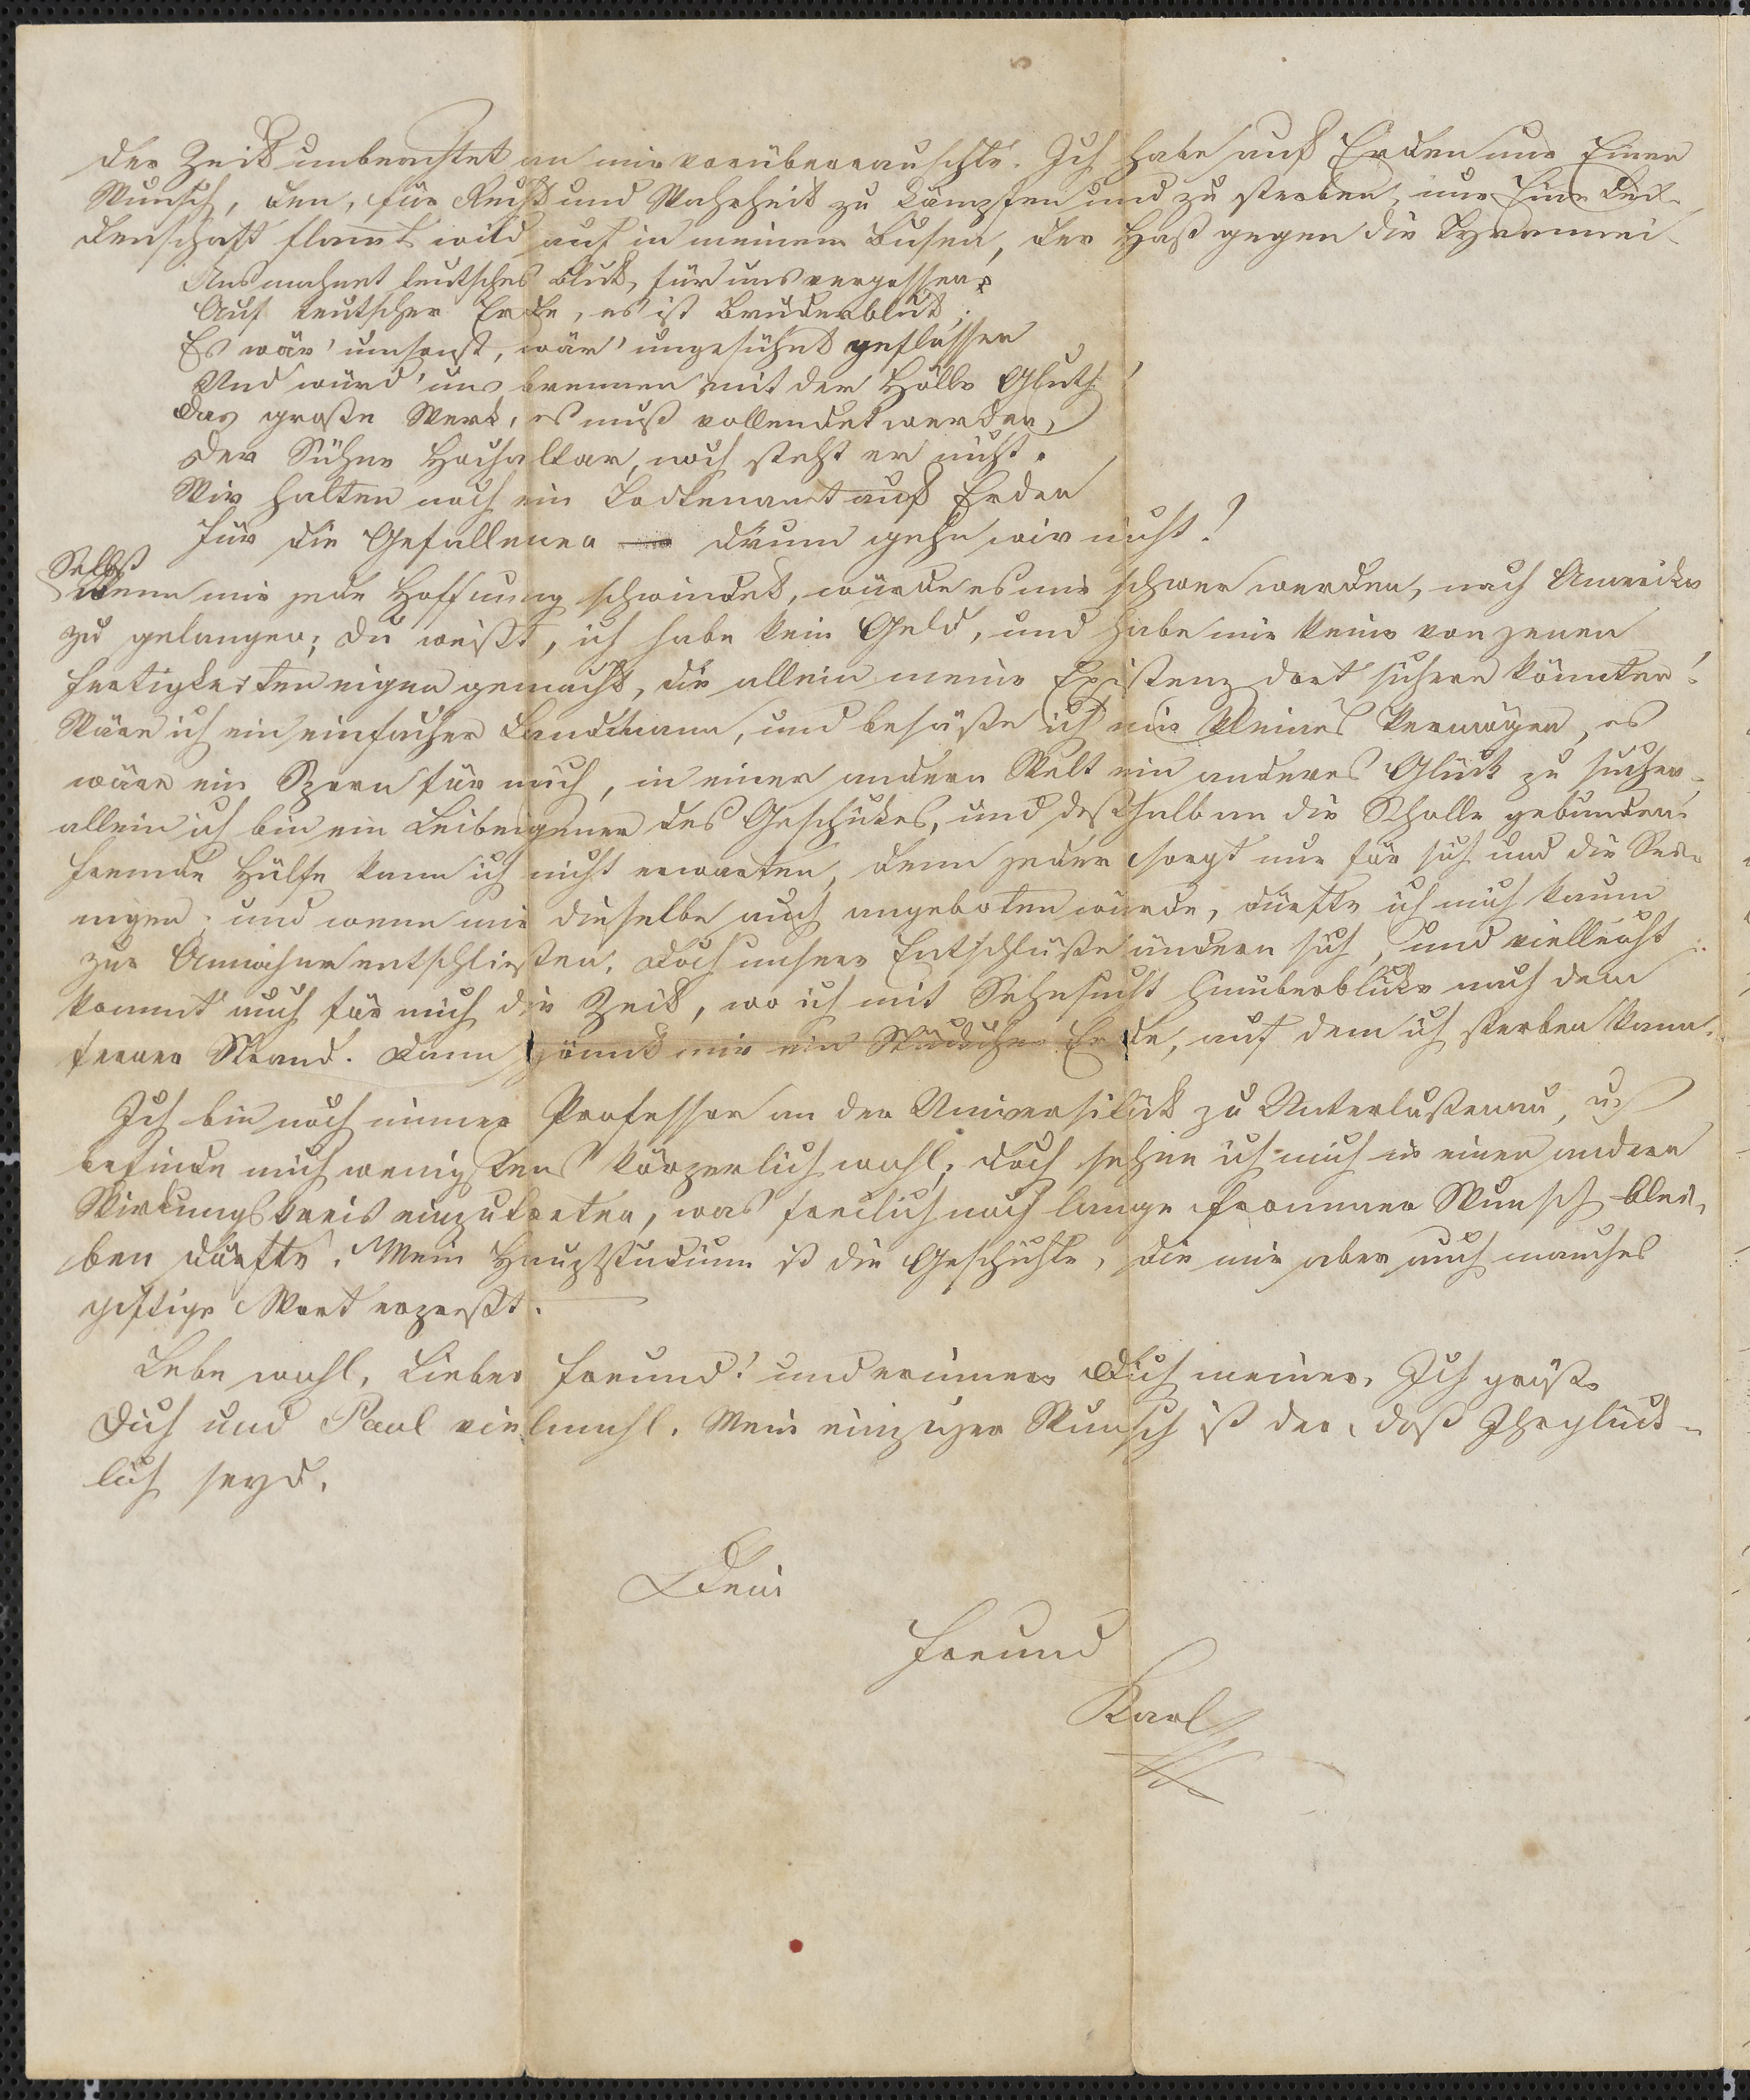 der Zeit unbeachtet an mir vorüberrauschte. Ich habe auf Erden nur Einen
Wunsch, den, für Recht und Wahrheit zu kämpfen und zu sterben, nur Eine Lei-
denschaft flamt wild auf in meinem Busen, der Haß gegen die Tyrannei.
Uns mahnet teutsches Blut, für uns vergossen,
Auf teutscher Erde, es ist Bruderblut;
Es wär' umsonst, wär' ungesühnt geflossen
Und würd' uns brennen mit der Hölle Gluth!
Das große Werk, es muß vollendet werden,
Der Sühne Hochaltar, noch steht er nicht.
Wir halten noch ein Todtenamt auf Erden
Für die Gefallenen — drum gehn wir nicht!
Selbst
wenn mir jede Hoffnung schwindet, würde es mir schwer werden, nach Amerika
zu gelangen; du weißt, ich habe kein Geld, und habe mir keine von jenen
Fertigkeiten eigen gemacht, die allein meine Existenz dort sichern könnten!
Wäre ich ein einfacher Landmann, und besäße ich ein kleines Vermögen, es
wäre ein Sporn für mich, in einer andern Welt ein anderes Glück zu suchen,
allein ich bin ein Leibeigener des Geschickes, und deßhalb an die Scholle gebunden.
Fremde Hülfe kann ich nicht erwarten, denn jeder sorgt nur für sich und die Sei-
nigen; und wenn mir dieselbe auch angeboten würde, dürfte ich mich kaum
zur Annahme entschließen. Doch unsere Entschlüße ändern sich, und vielleicht
kommt auch für mich die Zeit, wo ich mit Sehnsucht hinüberblicke nach dem
fernen Strand. Dann gönnt mir ein Stückchen Erde, auf dem ich sterben kann.
Ich bin noch immer Professor an der Universität zu Unterlustenau, u.
befinde mich wenigstens körperlich wohl; doch sehne ich mich in einen andern
Wirkungskreis einzutreten, was freilich noch lange frommer Wunsch blei-
ben dürfte. Mein Hauptstudium ist die Geschichte, die mir aber auch manches
giftige Wort erpreßt.
Lebe wohl, lieber Freund! und erinnere Dich meiner. Ich grüße
Dich und Paul vielmahl. Mein einziger Wunsch ist der, daß Ihr glück-
lich seyd.
Dein
Freund
Karl